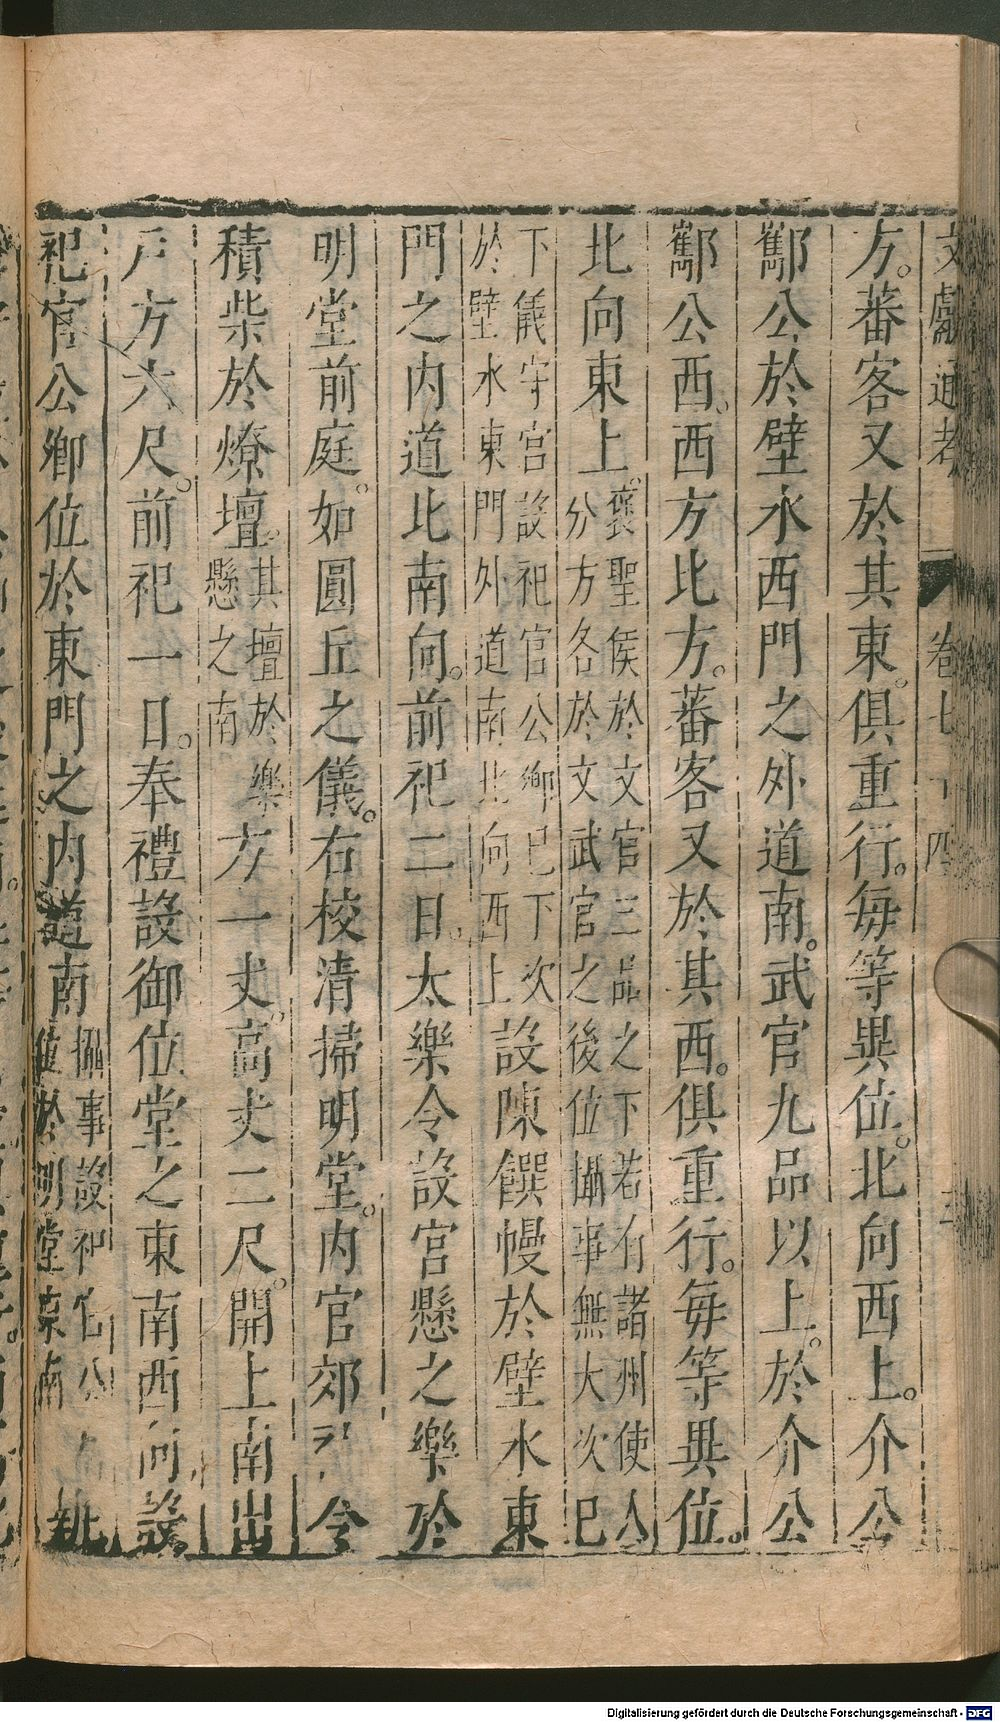 文獻通考 卷七十四 三
方。蕃客又於其東。俱重行。每等異位。北向西上。介公
酅公於壁水西門之外道南。武官九品以上。於介公
酅公西。西方北方。蕃客又於其西。俱重行。每等異位。
北向東上。褒聖侯於文官三品之下若有諸州使人
分方各於文武官之後位攝事無大次已
下儀守宮設祀官公卿已下次
於壁水東門外道南北向西上
設陳饌幔於壁水東
門之內道北南向。前祀二日。太樂令設宮懸之樂於
明堂前庭。如圓丘之儀。右校清掃明堂。內官郊 令
積柴於燎壇。其壇於樂
懸之南
方一丈。高丈二尺。開上南出
戶方六尺。前祀一日。奉禮設御位堂之東南西向。設
祀官公卿位於東門之內道南攝事設祀官公
位於明堂東南
北
Digitalisierung gefördert durch die Deutsche Forschungsgemeinschaft - DFG